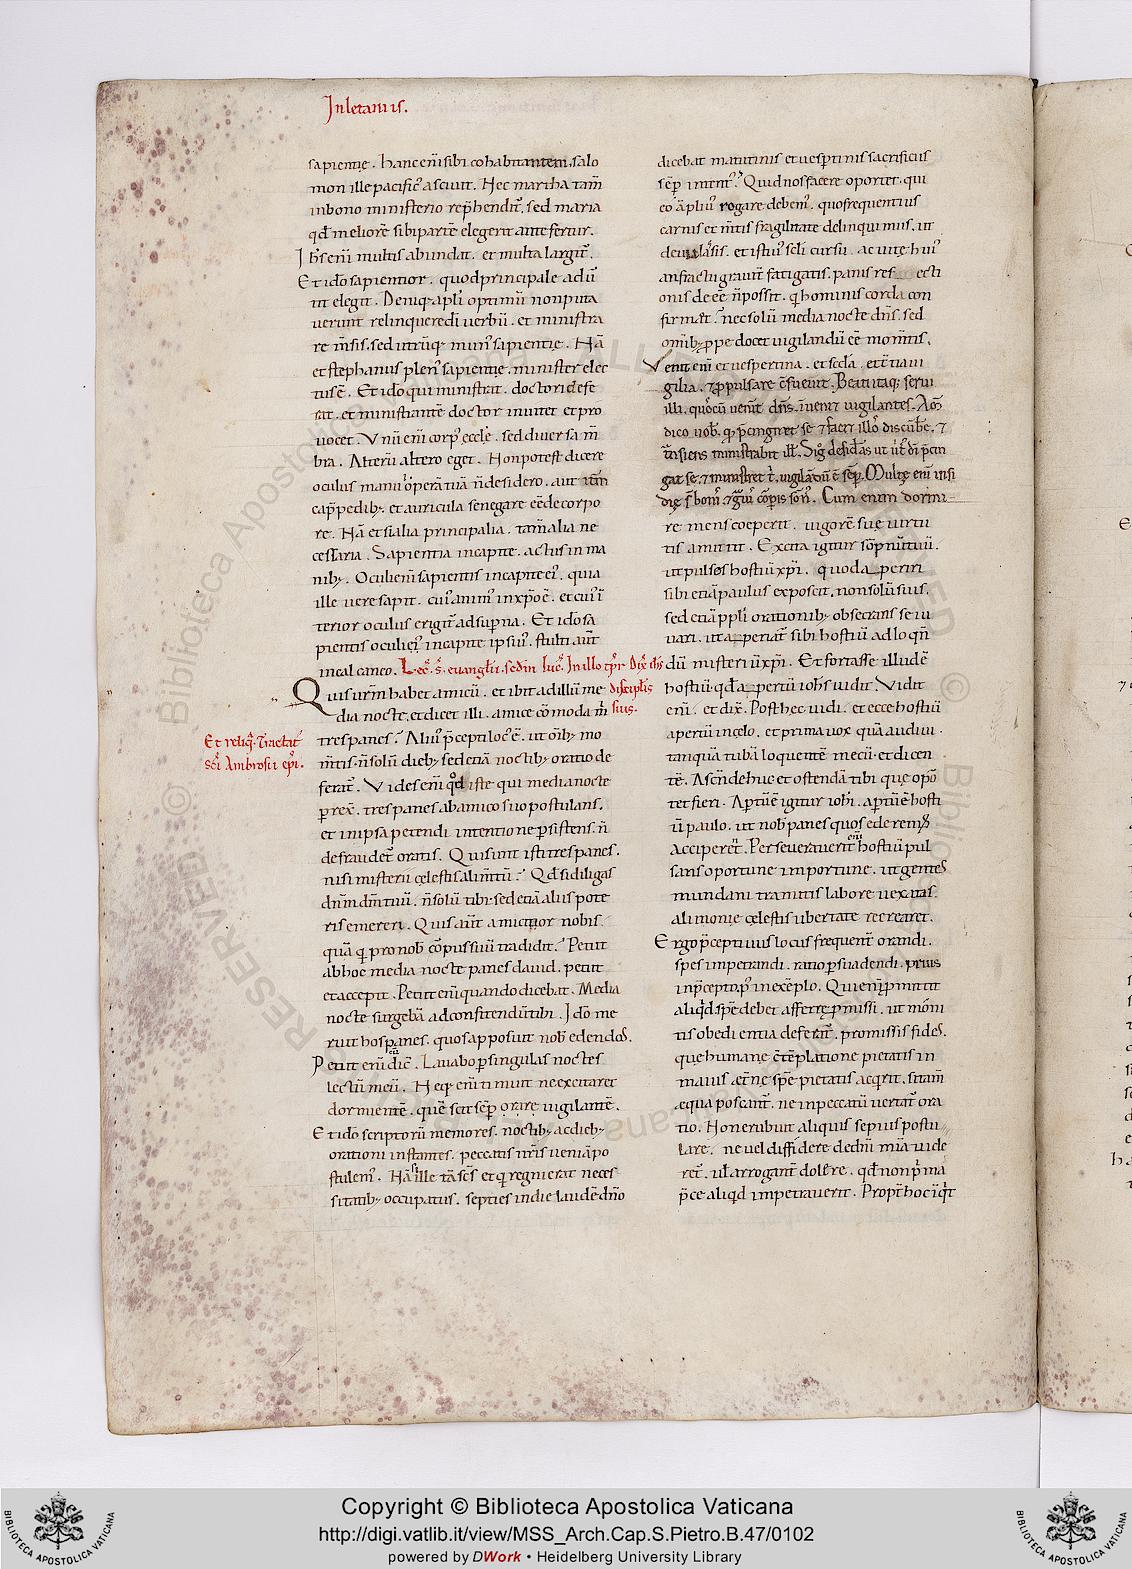 In letaniis.
sapientię. hanc enī sibi cohabitantem. salo
mon ille pacific' asciuit. Hec martha tam̄
in bono ministerio rep̄hendit̄. sed maria
qd̄ meliorē sibi partē elegerit antefertur.
Ihs̄ enī multis abundat. et multa largit̄.
Et idō sapientior. quod principale adū
tit elegit. Deniq; apl̄i optimū non puta
uerunt relinquere dī uerbū. et ministra
re m̄sis. sed utrūq; mun' sapientię. Nā
et stephanus plen' sapientię. minister elec
tus ē. Et idō qui ministrat. doctori defe
rat. et ministrantē doctor inuitet et pro
uocet. Vnū enī corp' eccłe. sed diuersa m̄
bra. Alterū altero eget. Non potest dicere
oculus manui operā tuā n̄ desidero. aut itē
cap̄ pedib;. et auricula se negare eē de corpo
re. Nā etsi alia principalia. tam̄ alia ne
cessaria. Sapientia in capite. actus in ma
nib;. Oculi enī sapientis in capite ei'. quia
ille uere sapit. cui' anim' in xp̄o ē. et cui' ī
terior oculus erigit̄ ad sup̄na. Et idō sa
pientis oculi ei' in capite ipsiu'. stulti aūt
in calcaneo. Lec̄. s̄. euanglīi. sed̄m luc̄. In illo tp̄r Dix̄ ih̄s
discipl̄is
suis.
Quis ur̄m habet amicū. et ibit ad illū me
dia nocte. et dicet illi. amice cōmoda m̄
Et reliq̄. Tractat'
Sc̄i Ambrosii ep̄i.
tres panes? Aliu' p̄cepti loc' ē. ut om̄ib; mo
m̄tis. n̄ solū dieb; sed etiā noctib; oratio de
ferat̄. Vides enī qd̄ iste qui media nocte
p̄rexē. tres panes ab amico suo postulans.
et in ipsa petendi intentione p̄sistens. n̄
defraudet̄ oratis. Qui sunt isti tres panes.
nisi misterii cęlestis alim̄tū? Qd̄ si diligas
dn̄m dm̄ tuū. n̄ solū tibi. sed etiā aliis pote
ris emereri. Quis aūt amicior nobis.
quā q̄ pro nob̄ corpus suū tradidit? Petiit
ab hoc media nocte panes dauid. petiit
et accepit. Petiit enī quando dicebat. Media
nocte surgebā ad confitendū tibi. Idō me
ruit hos panes. quos apposuit nob̄ edendos.
Petiit enī cū dic̄. Lauabo p̄ singulas noctes
lectū meū. Neq; enī timuit ne excitaret
dormientē. quē scit sēp̄ orare uigilantē.
Et idō scriptorū memores. noctib; ac dieb;
orationi instantes. peccatis nr̄is uenia po
stulem'. Nā si ille tā sc̄s et q̄ regni erat neces
sitatib; occupatus. septies in die laudē dn̄o
dicebat matutinis et uesp̄tinis sacrificiis
sēp̄ intent'? Quid nos facere oportet. qui
eo āpliu' rogare debem'. quo frequentius
carnis et m̄tis fragilitate delinquimus. ut
de uia lassis. et istiu' sc̄li cursu. ac uitę hui'
anfractu grauit̄ fatigatis. panis refecti
onis deeē n̄ possit. q̄ hominis corda con
firmat? nec solū media nocte dn̄s. sed
om̄ib; p̄pe docet uigilandū eē mom̄tis.
Venit enī et uespertina. et sc̄da. et t̄tia ui
gilia. et p̄pulsare c̄sueuit. Beati itaq; serui
illi. quos cū uen̄it dn̄s. inuen̄it uigilantes. Am̄
dico uob̄. q̄ p̄cinget se et faciet illos discūb̄e. et
trāsiens ministrabit ill̄. Sig desidas ut ut̄ dī p̄cin
gat se. et ministret t̄. uigilādū ē sēp̄. Multę enī insi
dię s̄ hom̄. et grauis corp̄is son̄. Cum enim dormi
re mens coeperit. uigorē suę uirtu
tis amittit. Excita igitur sōpnū tuū.
ut pulses hostiū xp̄i. quod aperiri
sibi etiā paulus exposcit. non solū suis.
sed etiā pp̄li orationib; obsecrans se iu
uari. ut aperiat̄ sibi hostiū ad loquen
dū misteriū xp̄i. Et fortasse illud ē
hostiū. qd̄ apertū ioh̄s uidit. Vidit
enī. et dix̄. Post hec uidi. et ecce hostiū
apertū in cęlo. et prima uox quā audiui.
tanquā tubā loquentē mecū. et dicen
tē. Ascende huc et ostendā tibi que opor
tet fieri. Apertū ē igitur ioh̄i. apertū ē hosti
ū paulo. ut nob̄ panes quos ederemus
acciperet̄. Perseuerauerit enī hostiū pul
sans oportune importune. ut gentes
mundani tramitis labore uexatas.
alimonię cęlestis ubertate recrearet.
Ergo p̄cepti uius locus frequent̄ orandi.
spes impetrandi. ratio p̄suadendi. prius
in p̄cepto. p̄' in exēplo. Qui enī p̄mittit
aliqd̄ spē debet afferre p̄missi. ut moni
tis obedientia deferat̄. promissis fides.
quę humanę cōtēplatione pietatis in
maius ęt̄nę spē pietatis acq̄rit. si tam̄
ęqua poscant̄. ne in peccatū uertat̄ ora
tio. Non erubuit aliquis sepius postu
lare. ne uel diffidere de dn̄i mīa uide
ret̄. ul̄ arrogant̄ dolēre. qd̄ non prima
p̄ce aliqd̄ impetrauerit. Propt̄ hoc inqt̄
Copyright © Biblioteca Apostolica Vaticana
http://digi.vatlib.it/view/MSS_Arch.Cap.S.Pietro.B.47/0102
powered by DWork • Heidelberg University Library